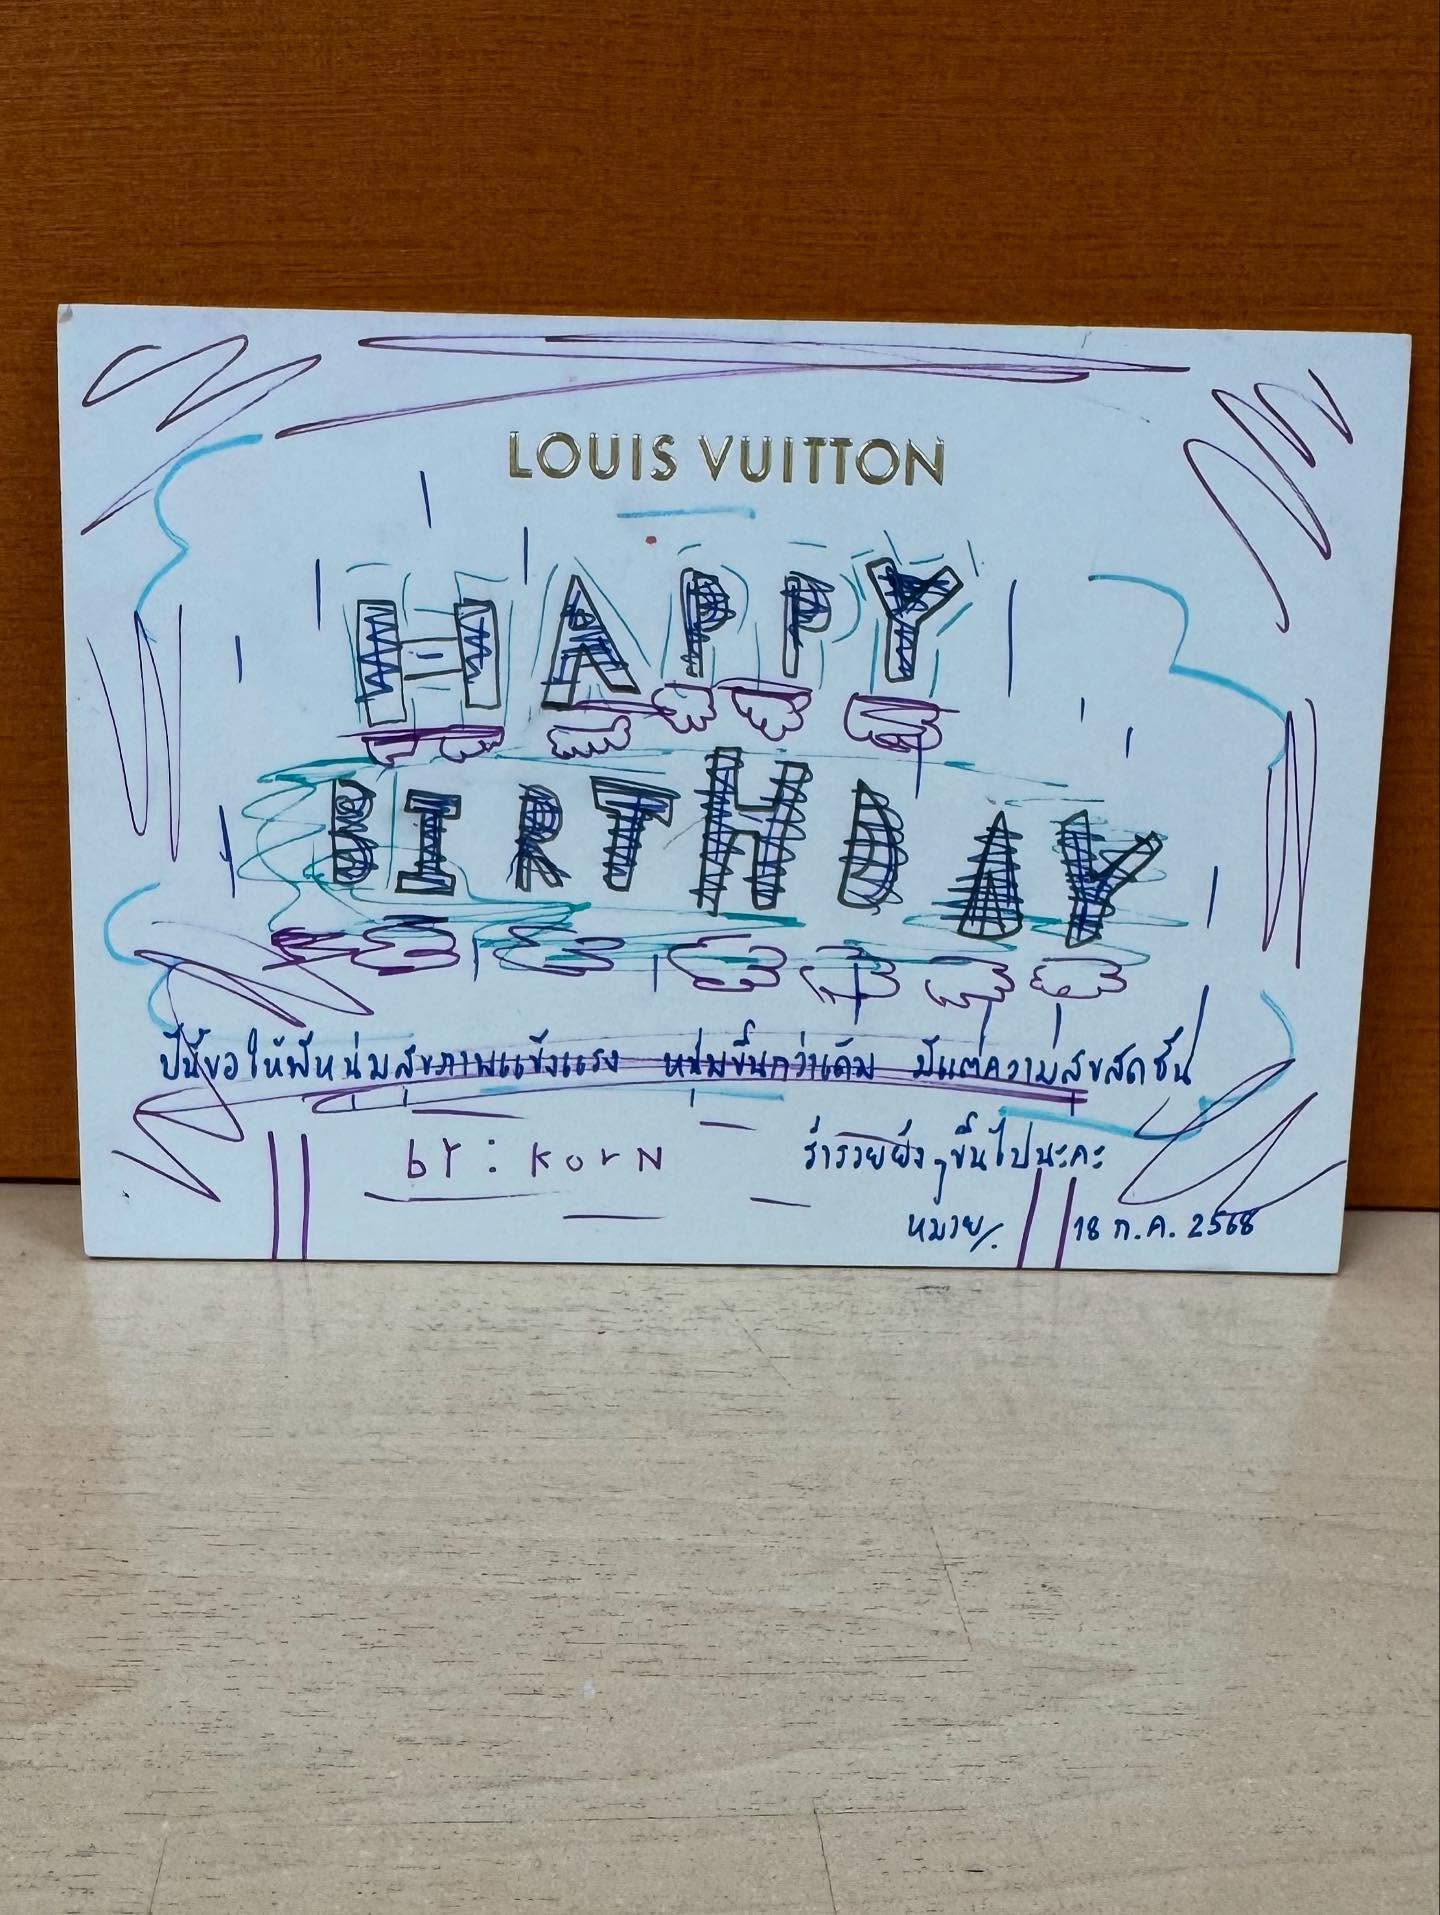 LOUIS VUITTON
HAPPY
BIRTHDAY
ปีนี้ขอให้พี่หนุ่มสุขภาพแข็งแรง หนุ่มขึ้นกว่าเดิม มีแต่ความสุขสดชื่น
ร่ำรวยยิ่งๆขึ้นไปนะคะ
bY : KorN
หมวย/. 18 ก.ค. 2568